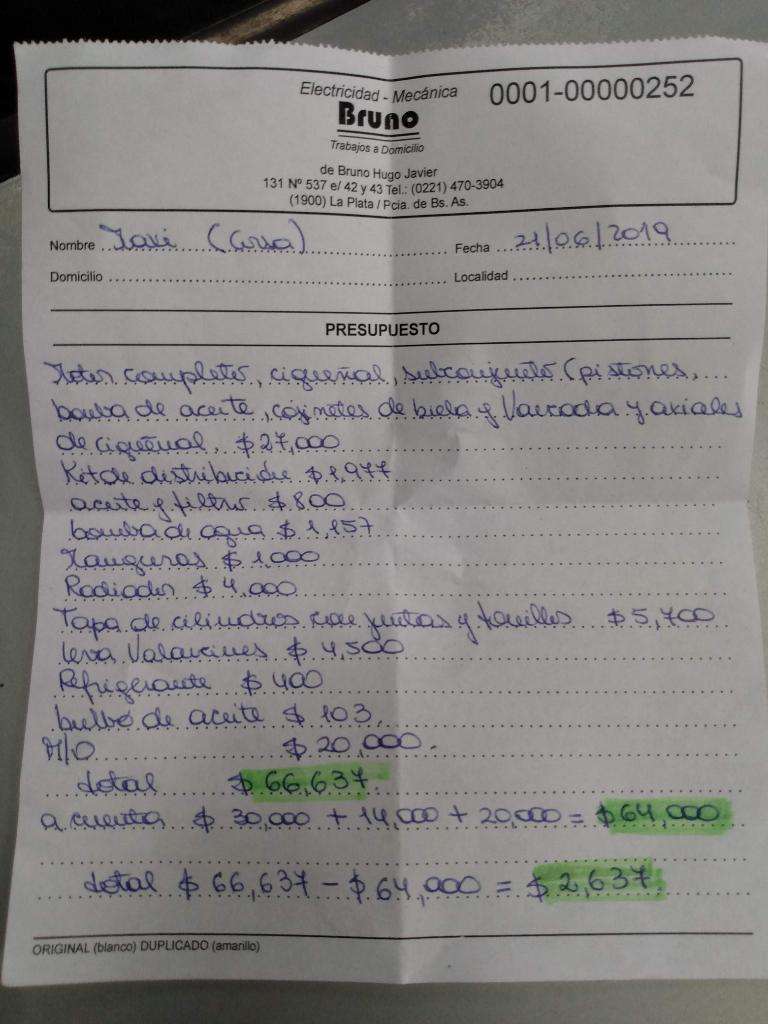 Electricidad - Mecánica
0001-00000252
Bruno
Trabajos a Domicilio
de Bruno Hugo Javier
131 Nº 537 e/ 42 y 43 Tel.: (0221) 470-3904
(1900) La Plata / Pcia. de Bs. As.
Nombre Javi Fecha 21/06/2019
Domicilio Localidad
PRESUPUESTO
Motor completo, cigueñal, subconjunto (pistones,
bomba de aceite, cojinetes de biela y bancada y axiales
de cigueñal, $ 27,000
Kit de distribución $ 1,977
aceite y filtro $ 800
bomba de agua $ 1,157
Mangueras $ 1,000
Radiador $ 4,000
Tapa de cilindros con juntas y tornillos $ 5,700
leva Balancines $ 4,500
Refrigerante $ 400
bulbo de aceite $ 103,
M/O $ 20,000.
total $ 66,637
a cuenta $ 30,000 + 14,000 + 20,000 = $ 64,000
total $ 66,637 - $ 64,000 = $ 2,637
ORIGINAL (blanco) DUPLICADO (amarillo)